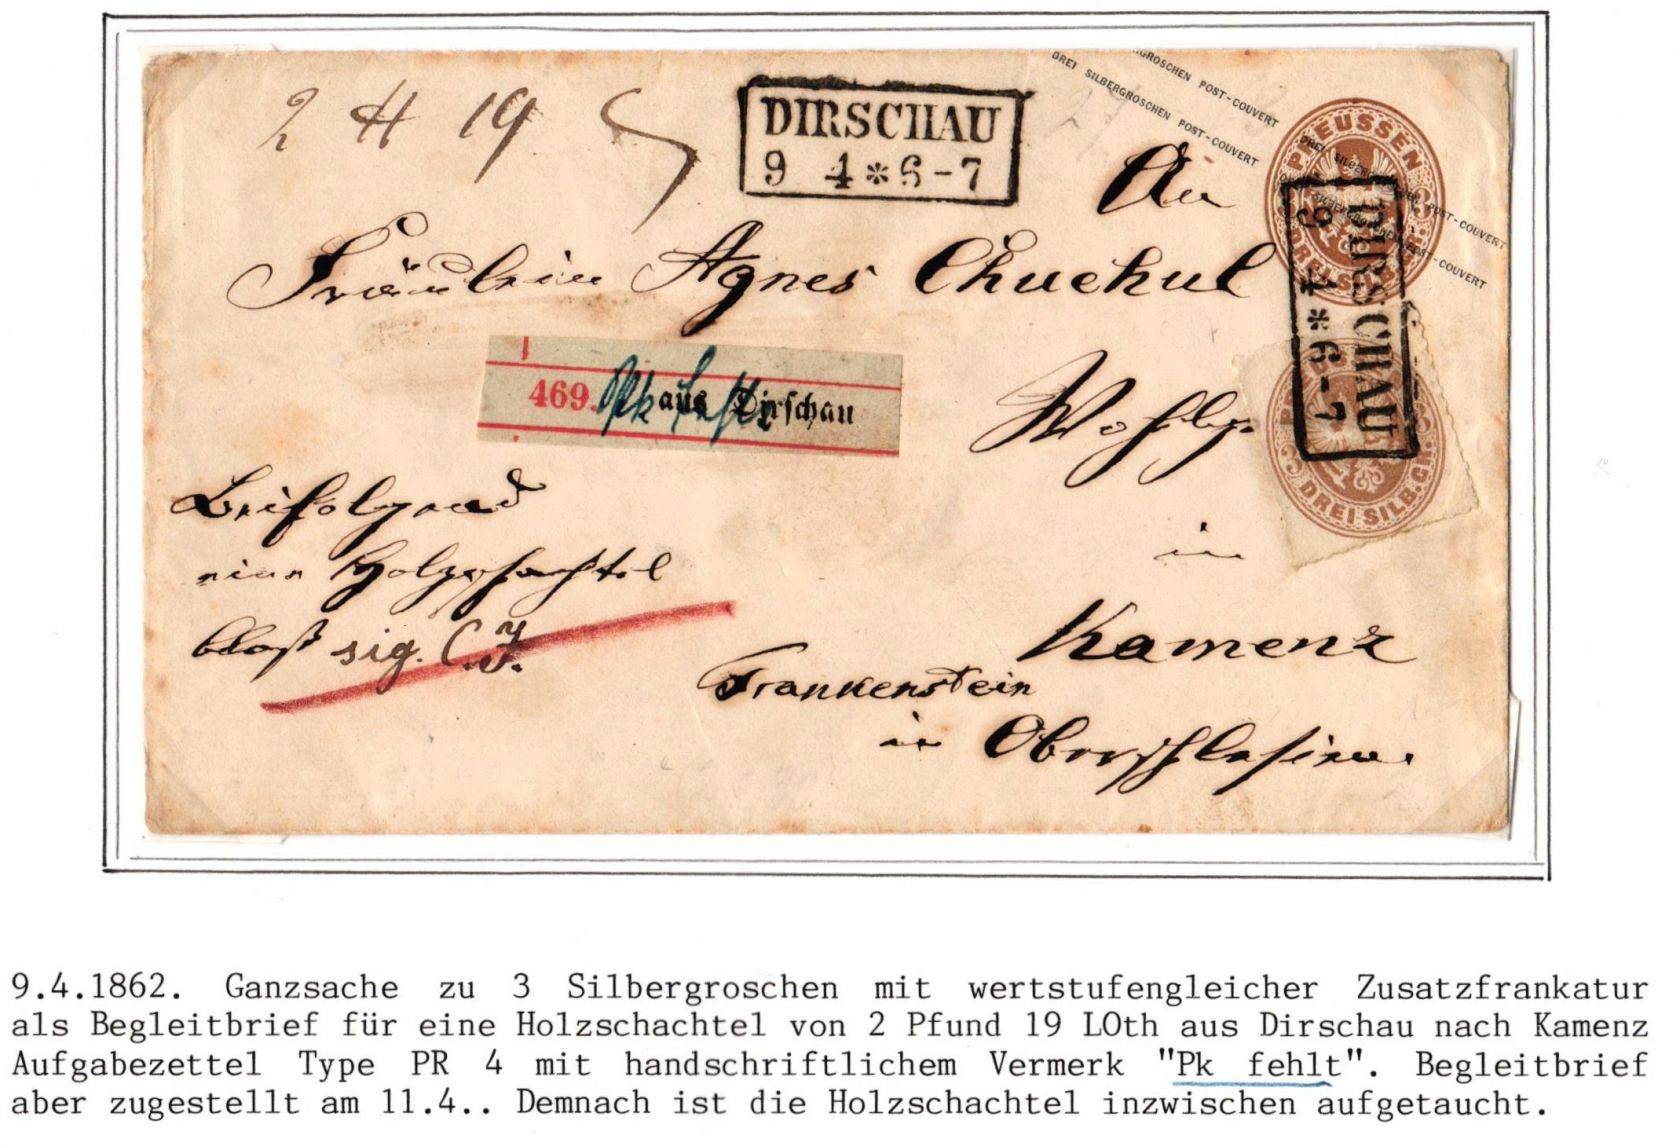 2 ℔ 19
DIRSCHAU
9 4 * 6-7
DREI SILBERGROSCHEN POST-COUVERT
GROSCHEN POST-COUVERT
PREUSSEN
3 DREI SILB. GR. 3
An
Fräulein Agnes Chuchul
469. aus Dirschau
Pk fehlt
Wohlg.
DIRSCHAU
9 4 * 6-7
3 DREI SILB. GR. 3
in
Beifolgend
eine Holzschachtel
bloß sig. C. J.
Kamenz
Frankenstein
in Oberschlesien.
9.4.1862. Ganzsache zu 3 Silbergroschen mit wertstufengleicher Zusatzfrankatur
als Begleitbrief für eine Holzschachtel von 2 Pfund 19 LOth aus Dirschau nach Kamenz
Aufgabezettel Type PR 4 mit handschriftlichem Vermerk "Pk fehlt". Begleitbrief
aber zugestellt am 11.4.. Demnach ist die Holzschachtel inzwischen aufgetaucht.